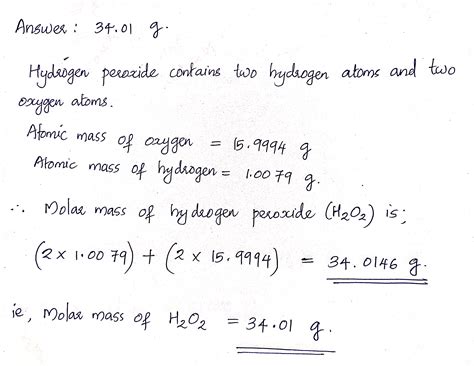 Answer : 34.01 g.
Hydrogen peroxide contains two hydrogen atoms and two
oxygen atoms.
Atomic mass of oxygen = 15.9994 g
Atomic mass of hydrogen = 1.0079 g.
∴ Molar mass of hydrogen peroxide (H₂O₂) is;
(2 x 1.0079) + (2 x 15.9994) = 34.0146 g.
ie, Molar mass of H₂O₂ = 34.01 g.